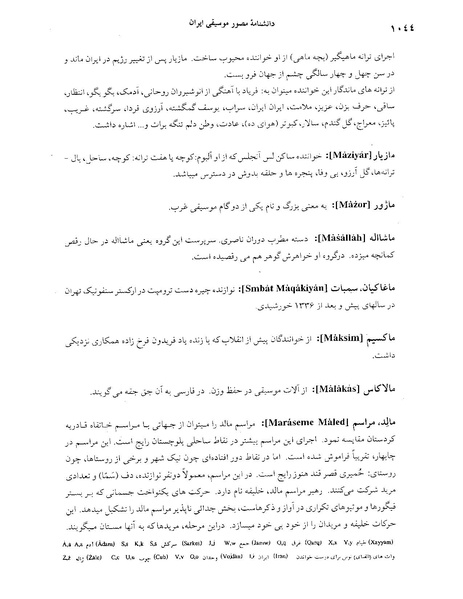 دانشنامهٔ مصور موسیقی ایران
۱۰۴۴
اجرای ترانه ماهیگیر (بچه ماهی) از او خواننده محبوب ساخت. مازیار پس از تغییر رژیم در ایران ماند و
در سن چهل و چهار سالگی چشم از جهان فرو بست.
از ترانه های ماندگار این خواننده میتوان به: فریاد با آهنگی از انوشیروان روحانی، آدمک، بگو بگو، انتظار،
ساقی، حرف بزن، عزیز، ملامت، ایران ایران، سراب، یوسف گمگشته، آرزوی فردا، سرگشته، غریب،
پائیز، معراج، گل گندم، سالار، کبوتر (هوای ده)، عادت، وطن دلم تنگه برات و... اشاره داشت.
مازیار [Máziyár]: خواننده ساکن لس آنجلس که از او آلبوم: کوچه با هفت ترانه: کوچه، ساحل، یال -
ترانه‌ها، گل آرزو، بی وفا، پنجره ها و حلقه بدوش در دسترس میباشد.
ماژور [Mâžor]: به معنی بزرگ و نام یکی از دو گام موسیقی غرب.
ماشااله [Mâšâllâh]: دسته مطرب دوران ناصری. سرپرست این گروه یعنی ماشااله در حال رقص
کمانچه میزده. در گروه او خواهرش گوهر هم می رقصیده است.
ماغاکیان، سمبات [Smbât Mâqâkiyân]: نوازنده چیره دست ترومپت در ارکستر سنفونیک تهران
در سالهای پیش و بعد از ۱۳۳۶ خورشیدی.
ماکسیم [Mâksim]: از خوانندگان پیش از انقلاب که با زنده یاد فریدون فرخ زاده همکاری نزدیکی
داشت.
مالاکاس [Mâlâkâs]: از آلات موسیقی در حفظ وزن. در فارسی به آن جق جقه می گویند.
مالد، مراسم [Marâseme Mâled]: مراسم مالد را میتوان از جهاتی با مراسم خانقاه قادریه
کردستان مقایسه نمود. اجرای این مراسم بیشتر در نقاط ساحلی بلوچستان رایج است. این مراسم در
چابهار، تقریباً فراموش شده است. اما در نقاط دور افتاده‌ای چون نیک شهر و برخی از روستاها، چون
روستای: حُمیری قصر قند هنوز رایج است. در این مراسم، معمولاً دو نفر نوازنده، دف (سَمّا) و تعدادی
مرید شرکت می‌کنند. رهبر مراسم مالد، خلیفه نام دارد. حرکت های یکنواخت جسمانی که بر بستر
فیگورها و موتیوهای تکراری در آواز و ذکرهاست، بخش جدائی ناپذیر مراسم مالد را تشکیل میدهد. این
حرکات خلیفه و مریدان را از خود بی خود میسازد. در این مرحله، مریدها که به آنها مستان میگویند.